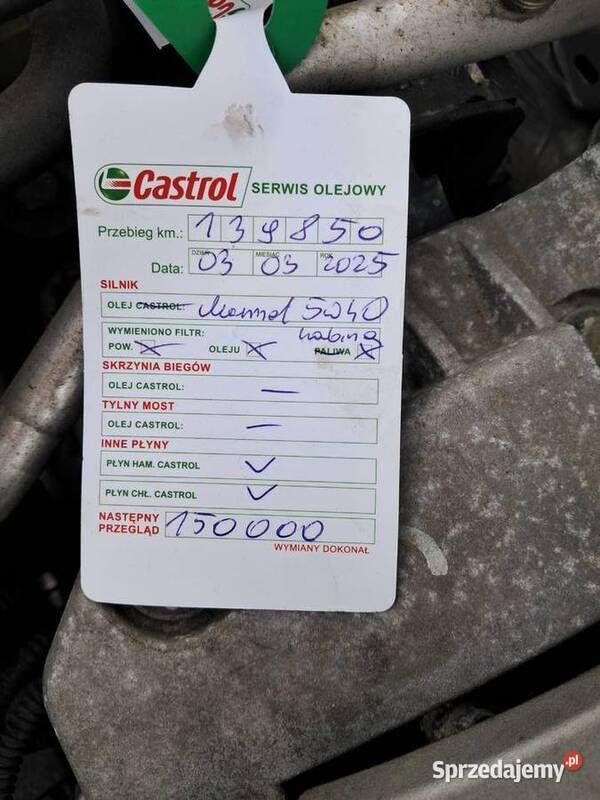 Castrol SERWIS OLEJOWY
Przebieg km.: 139850
DZIEŃ MIESIĄC ROK
Data: 03 03 2025
SILNIK
OLEJ CASTROL: Mannol 5W40
WYMIENIONO FILTR: kabina
POW. X OLEJU X PALIWA X
SKRZYNIA BIEGÓW
OLEJ CASTROL: —
TYLNY MOST
OLEJ CASTROL: —
INNE PŁYNY
PŁYN HAM. CASTROL ✓
PŁYN CHŁ. CASTROL ✓
NASTĘPNY PRZEGLĄD 150000
WYMIANY DOKONAŁ
Sprzedajemy.pl